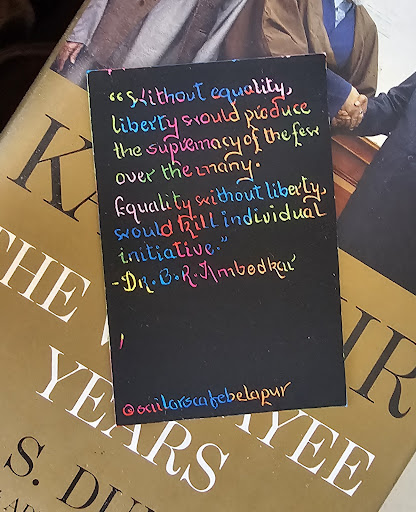 “Without equality,
liberty would produce
the supremacy of the few
over the many.
Equality without liberty,
would kill individual
initiative.”
-Dr. B.R. Ambedkar
@sailorscafebelapur
KA IR
THE V AYEE
YEARS
S. DU